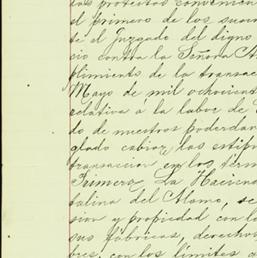 los protestos convenien
el primero de los suscri
te el juzgado del digno
cio contra la Señora Ca
plimiento de la transac
Mayo de mil ochocien
relativa á la labor de
do de nuestros poderdan
glado cabiar, las estipu
transaccion en los térm
Primera. La Hacien
talina del Alamo, se
sion y propiedad con lo
sus fábricas, derecho
bres, con los límites